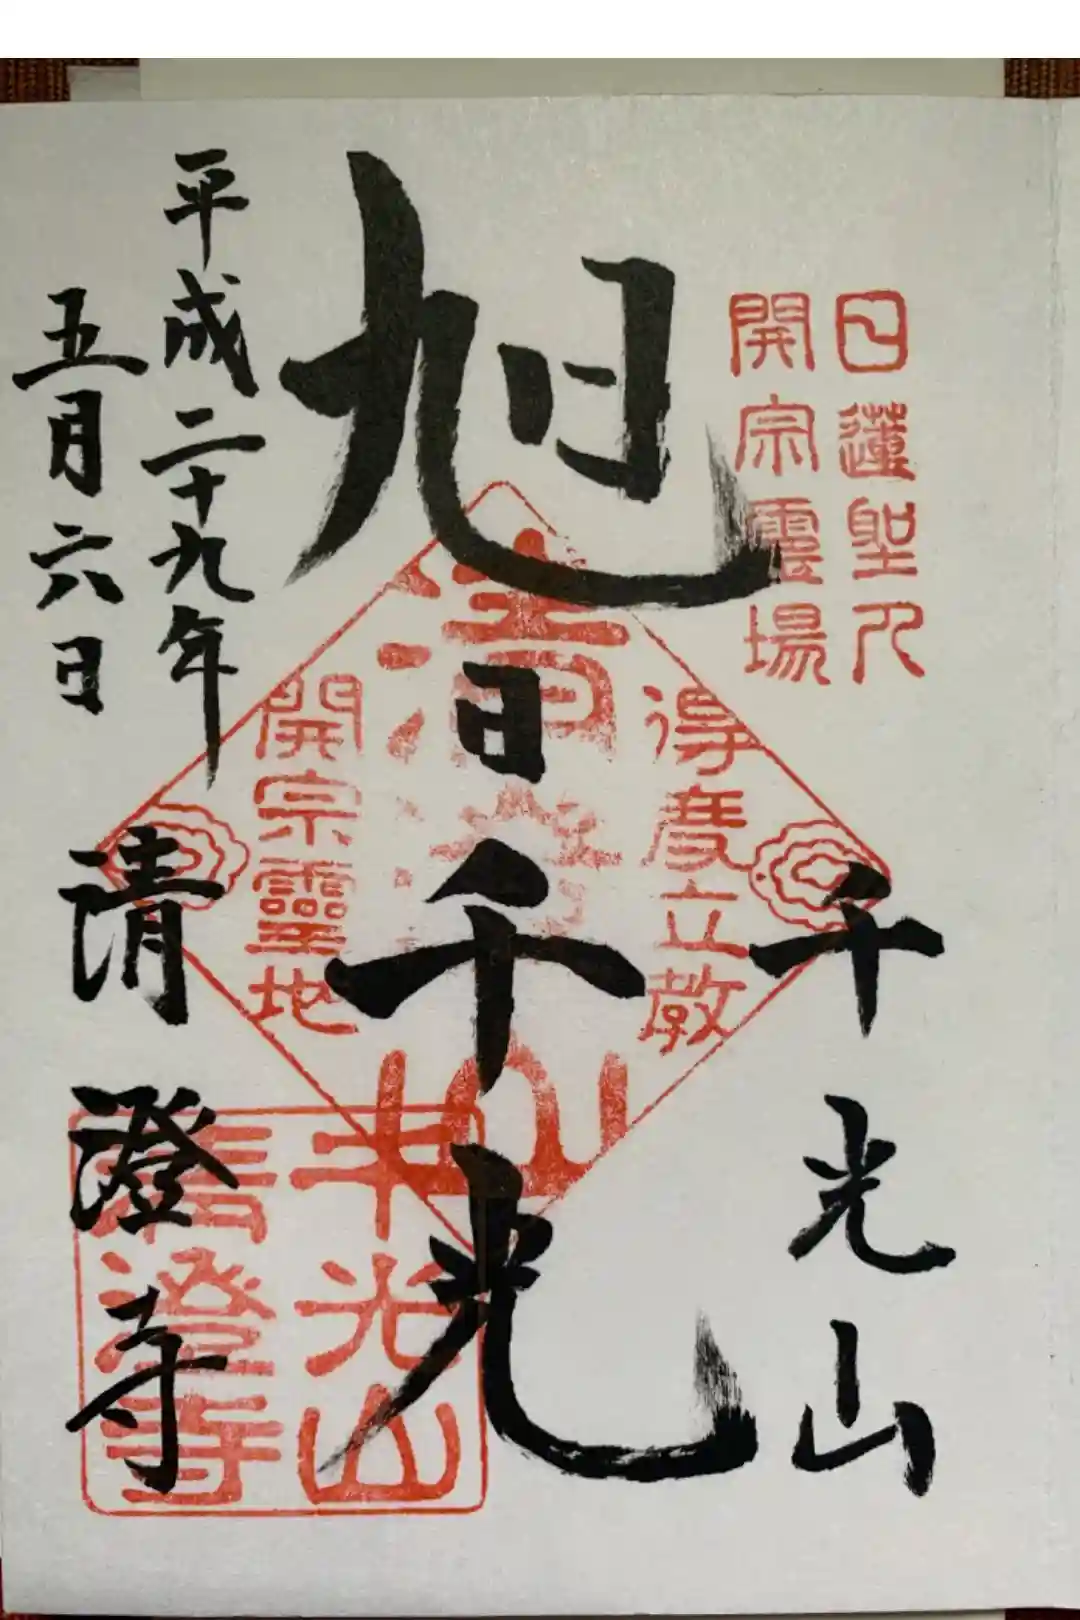 日蓮聖人
開宗霊場
千光山
得度立教
旭日千光
清澄山
開宗靈地
千光山
清澄寺
平成二十九年
五月六日
清澄寺